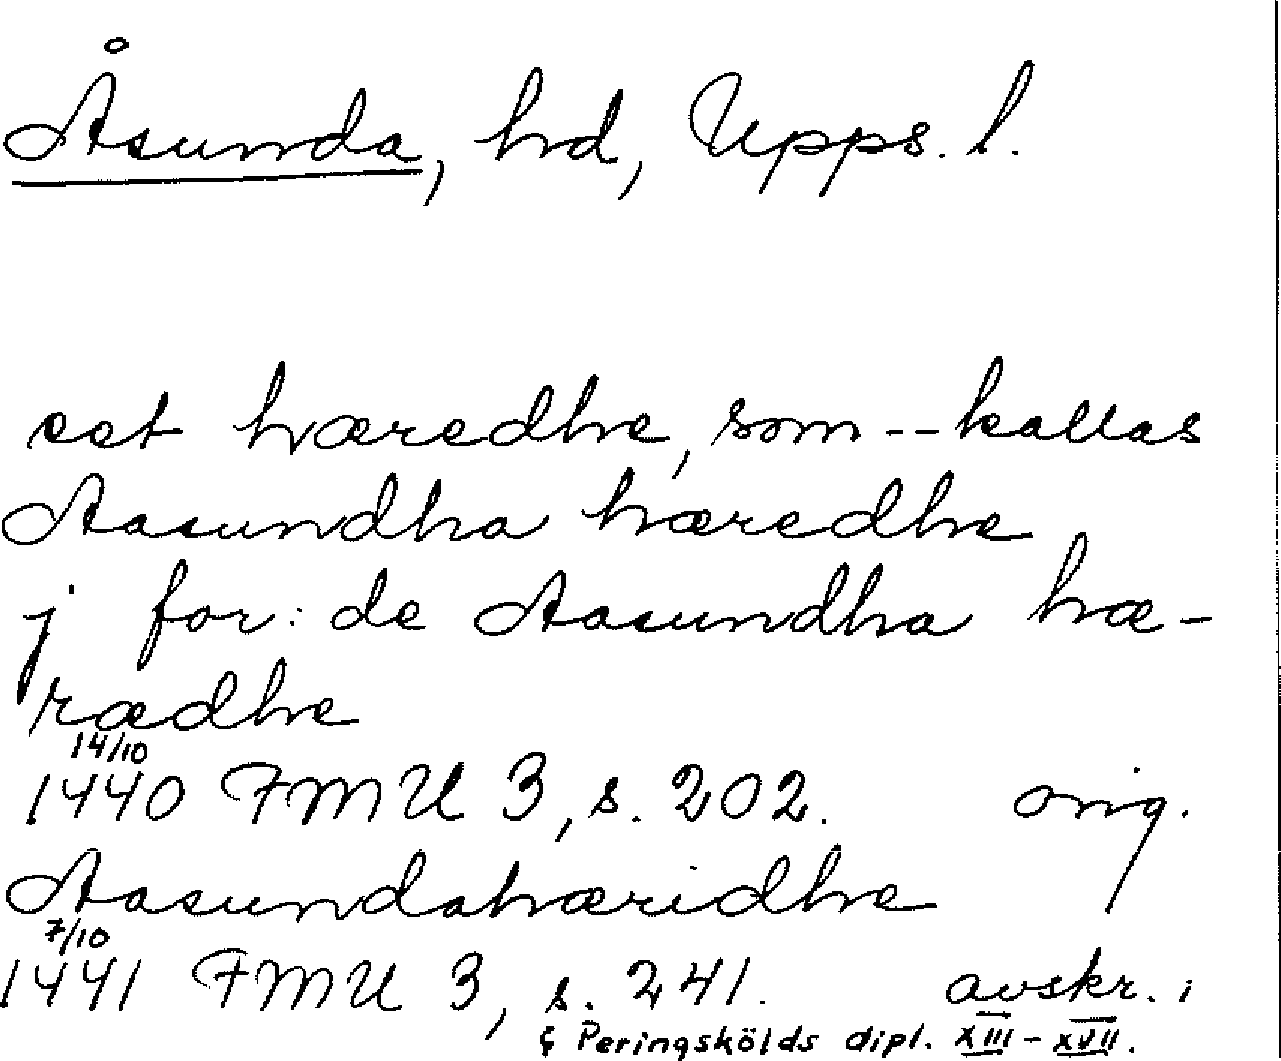 Åsunda, hd, Upps. l.
eet hæredhe, som -- kallas
Aasundha hæredhe
j for: de Aasundha hæ-
rædhe
14/10
1440 FMU 3, s. 202. orig.
Aasundahæridhe
7/10
1441 FMU 3, s. 241. avskr. i
Peringskölds dipl. XIII - XVII.